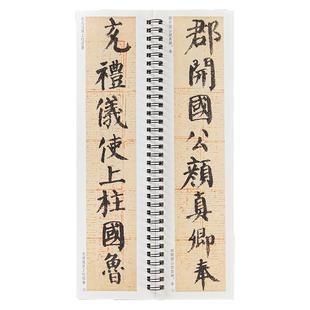 郡開國公顏真卿奉
充禮儀使上柱國魯